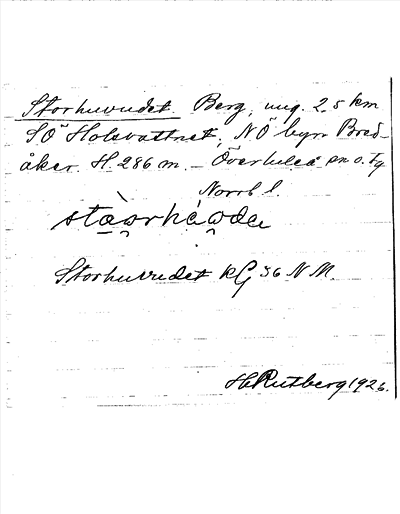 Storhuvudet. Berg, ung. 2,5 km
SÖ Holsvattnet, NÖ byn Bred-
åker. H. 286 m. – Överluleå sn o. tg
Norrb. l.
Storhuvudet kG 36 N M.
H Rutberg 1926.